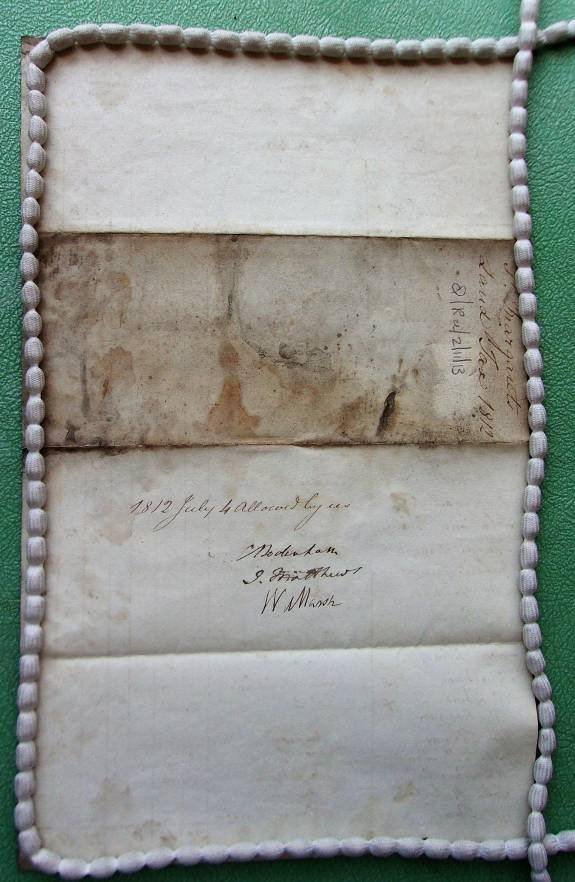 St Margarets
Land Tax 1812
Q/Re/2/11/13
1812 July 4 Allowed by us
Bodenham
J. Matthews
W Marsh